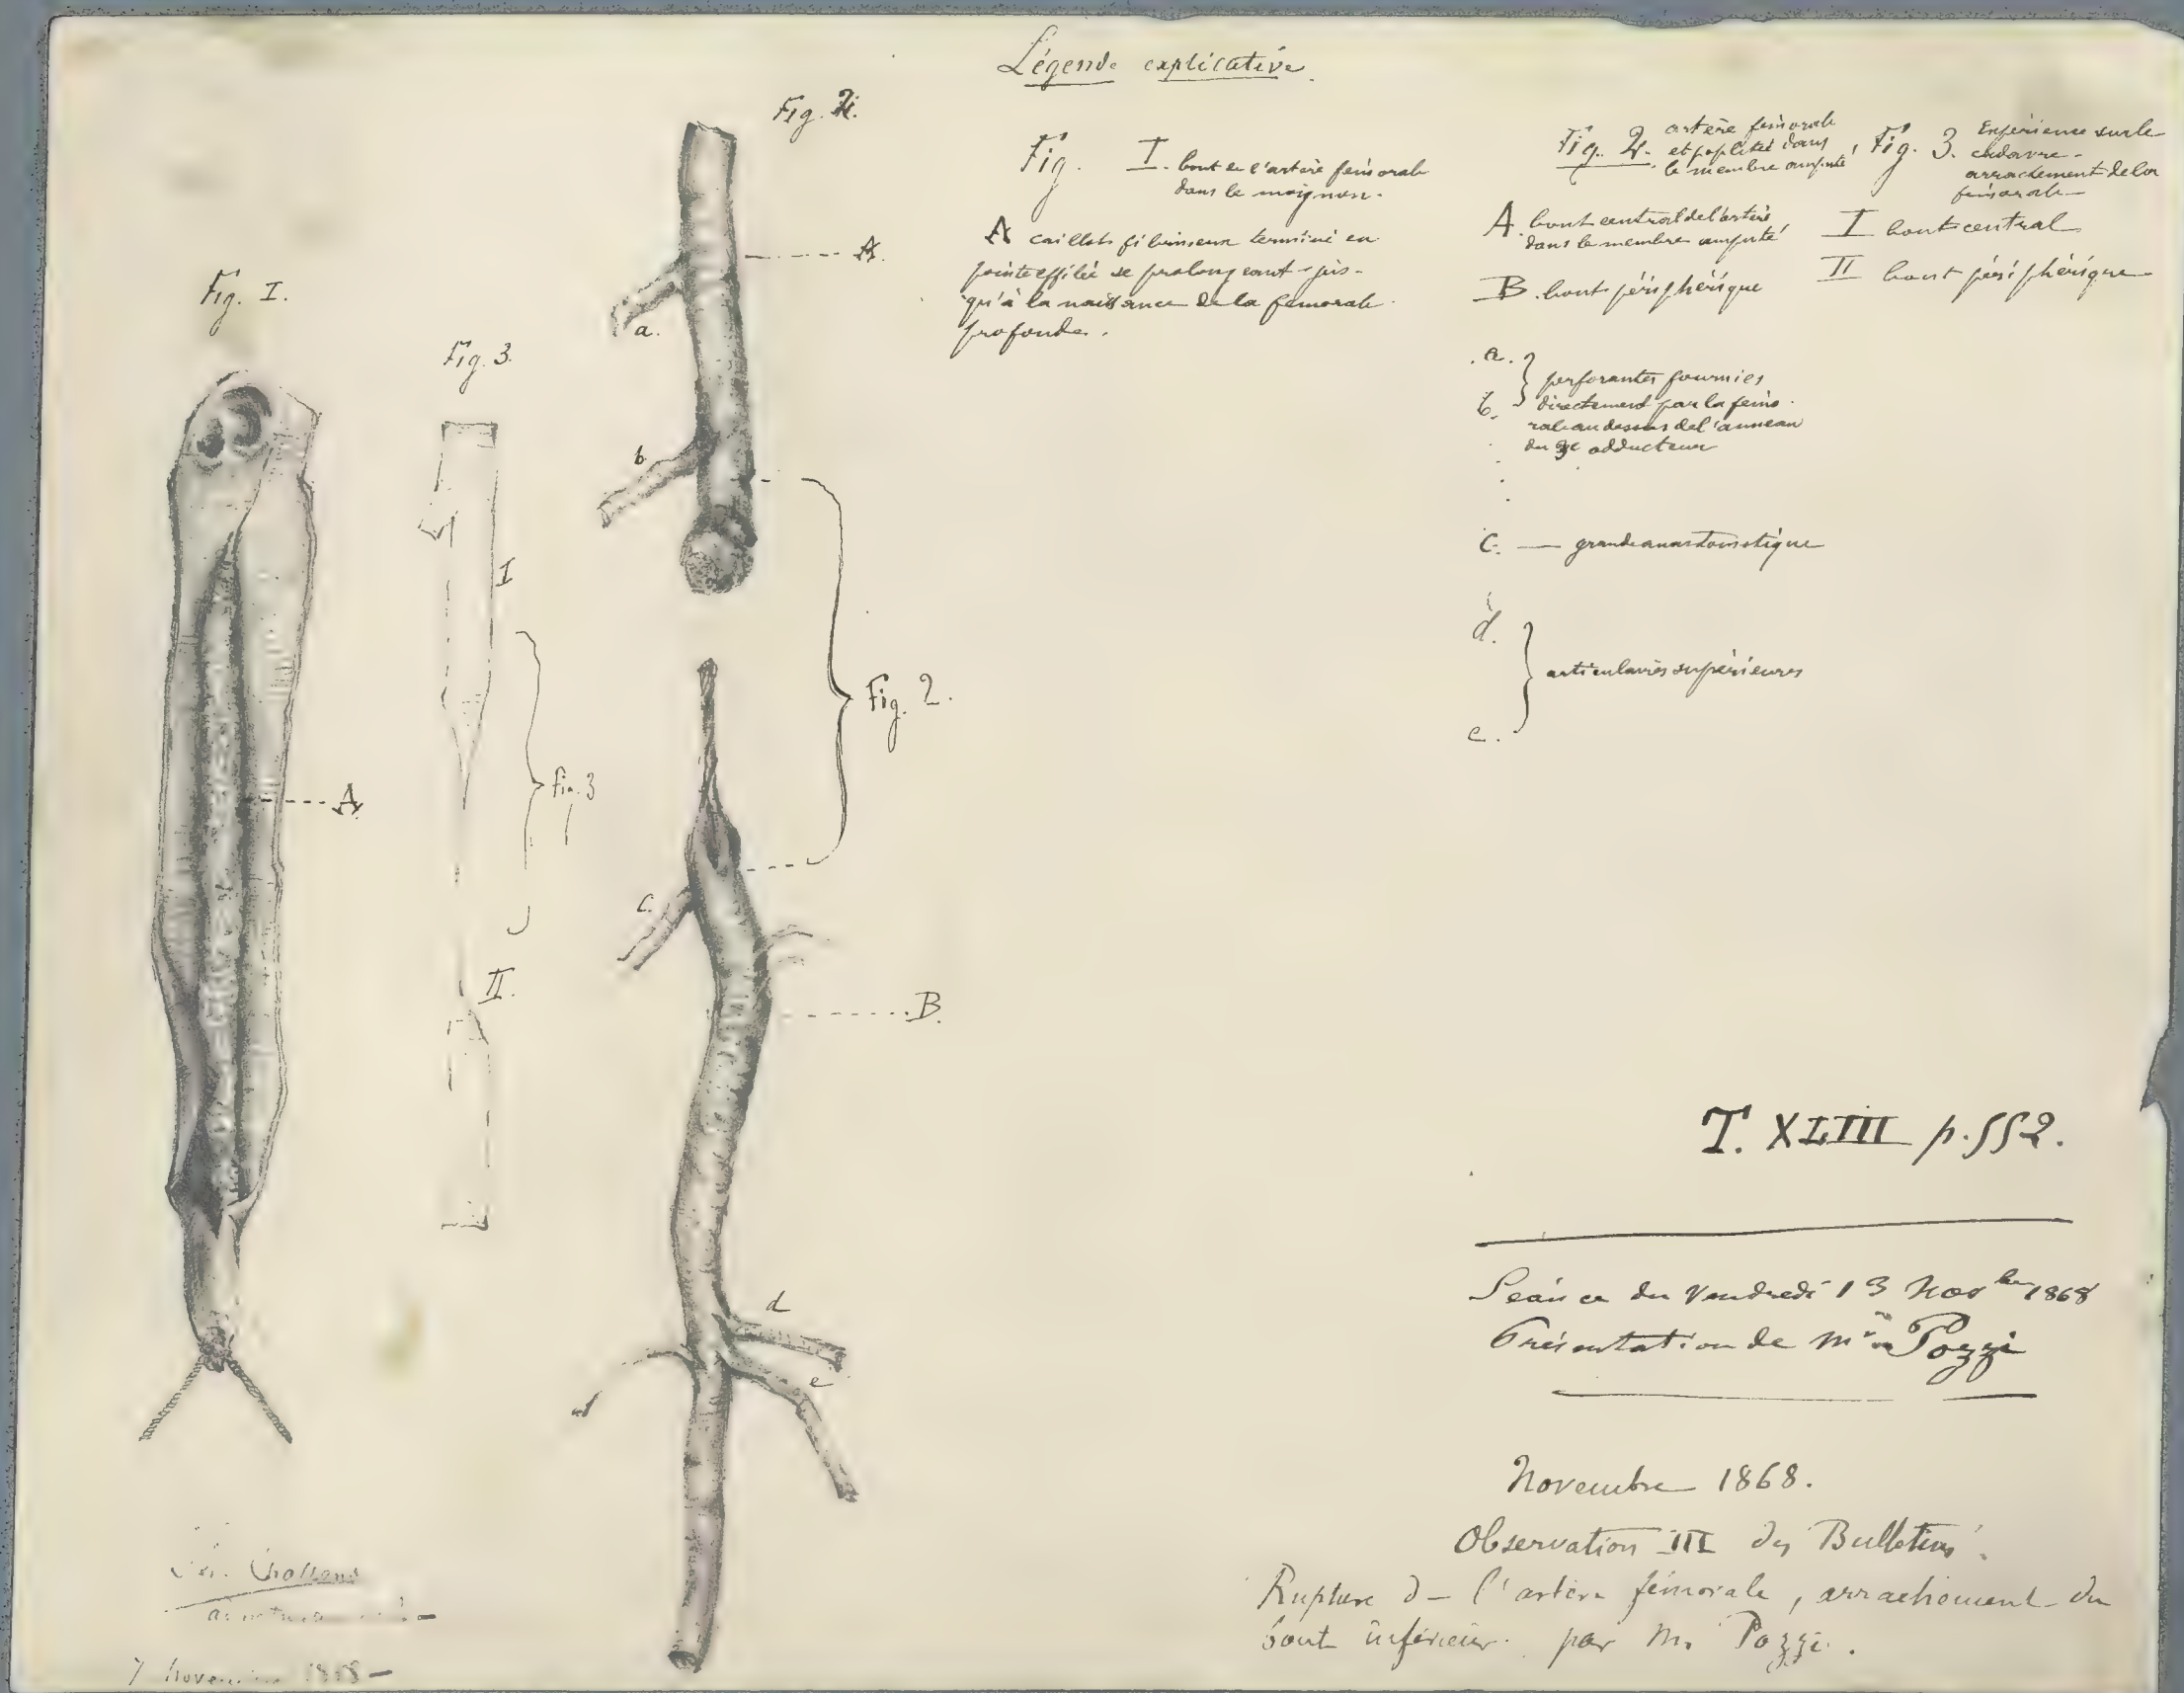 Légende explicative
Fig. 2.
Fig. I. bout de l'artère fémorale
dans le moignon.
A caillot fibrineux terminé en
pointe effilée se prolongeant jus-
qu'à la naissance de la fémorale
profonde.
Fig. 2. artère fémorale
et poplitée dans
le membre amputé
A. bout central de l'artère
dans le membre amputé
B. bout périphérique
a.
b.
perforantes fournies
directement par la fémo-
rale au dessus de l'anneau
du 3e adducteur
c. — grande anastomotique
d.
e.
articulaires supérieures
Fig. 3. Expérience sur le
cadavre -
arrachement de la
fémorale
I bout central
II bout périphérique
Fig. I.
A
Fig. 3.
I
fig. 3
II.
A.
a.
b
Fig. 2.
c.
B.
d
e
T. XLIII p. 552.
Séance du Vendredi 13 Novbre 1868
Présentation de Mr Pozzi
Novembre 1868.
Observation III des Bulletins.
Rupture de l'artère fémorale, arrachement du
bout inférieur. par M. Pozzi.
7 Novembre 1868 —